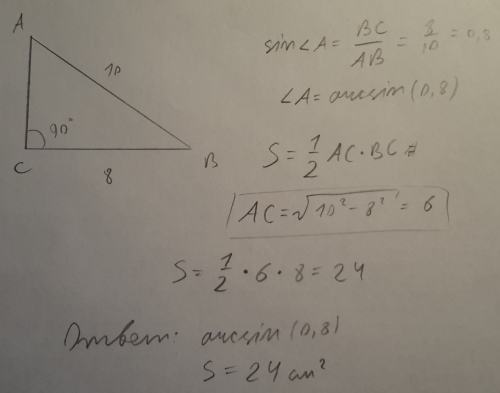 A
10
90°
C
8
B
sin∠A = BC/AB = 8/10 = 0,8
∠A = arcsin(0,8)
S = 1/2 AC · BC =
AC = √10² - 8² = 6
S = 1/2 · 6 · 8 = 24
Ответ: arcsin(0,8)
S = 24 см²